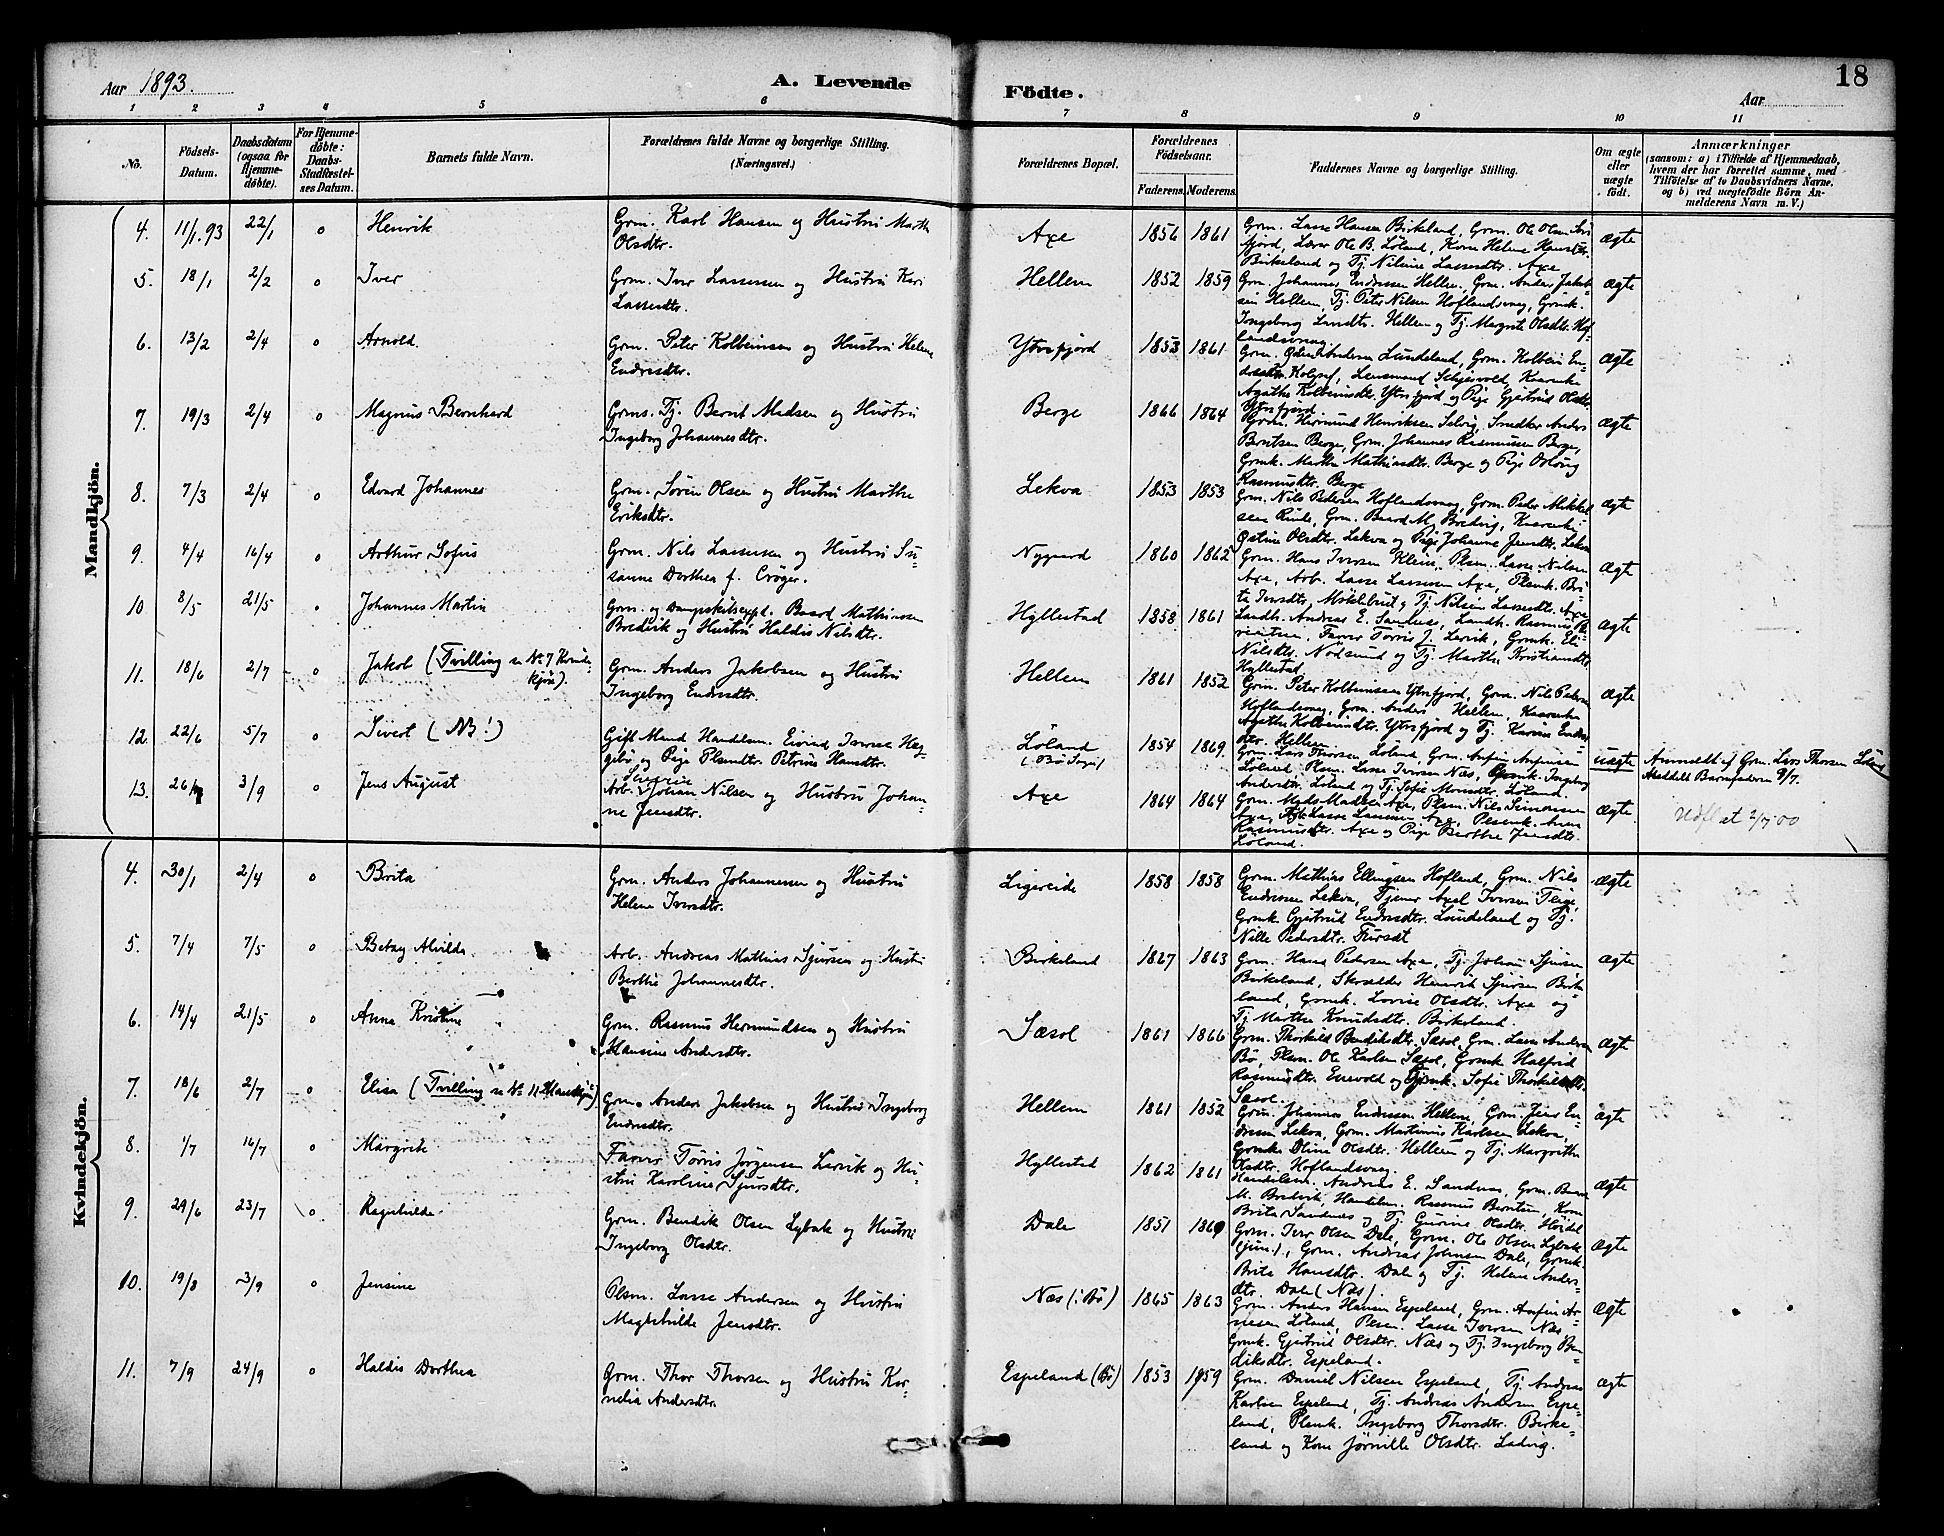 Aar 1893.
A. Levende Födte.
Aar
18
1 2 3 4 5 6 7 8 9 10 11
No.
Födsels-Datum.
Daabsdatum (ogsaa for Hjemme-döbte).
For Hjemme-döbte: Daabs-Stadfæstel-ses Datum.
Barnets fulde Navn.
Forældrenes fulde Navne og borgerlige Stilling. (Næringsvei.)
Forældrenes Bopæl.
Forældrenes Födselsaar.
Faderens. Moderens.
Faddernes Navne og borgerlige Stilling.
Om ægte eller uægte födt.
Anmærkninger
(saasom: a) i Tilfælde af Hjemmedaab, hvem der har forrettet samme, med Tilföielse af to Daabsvidners Navne, og b) ved uægtefödte Börn An-melderens Navn m. V.)
Mandkjön.
4. 11/1.93 22/1 o Henrik
Grm. Karl Hansen og Hustru Marthe
Olsdtr.
Axe 1856 1861
Grm. Lasse Hansen Birkeland, Grm. Ole Olsen
fjord, Lærer Ole B. Löland, Kone Helene Hansdtr.
Birkeland og Tj. Nilsine Lassesdtr. Axe
ægte
5. 18/1 2/2 o Iver
Grm. Iver Lassesen og Hustru Kari
Lassesdtr.
Hellem 1852 1859
Grm. Johannes Endresen Hellem, Grm. Anders Jakob-
sen Hellem, Tj. Peter Nilsen Hoflandsvaag, Grmk.
Ingeborg Larsdtr. Hellem og Tj. Margrite Olsdtr. Hof-
landsvaag
ægte
6. 13/2 2/4 o Arnold.
Grm. Peter Kolbeinsen og Hustru Helene
Endresdtr.
Ytrefjord 1853 1861
Grm. Andersen Lundeland, Grm. Kolbein En-
dresen Lensmand Schjesvold, Kaarenke
Agathe Kolbeinsdtr. Ytrefjord og Pige Gjertrud Olsdtr.
Ytrefjord
ægte
7. 19/3 2/4 o Magnus Bernhard
Grms. Tj. Bernt Madsen og Hustru
Ingeborg Johannesdtr.
Berge 1866 1864
Grm. Hermund Henriksen Selvig, Snedker Anders
Berntsen Berge, Grm. Johannes Rasmussen Berge,
Grmk. Marthe Mathiasdtr. Berge og Pige Oslaug
Rasmusdtr. Berge
ægte
8. 7/3 2/4 o Edvard Johannes
Grm. Sören Olsen og Hustru Marthe
Eriksdtr.
Lekva 1853 1853
Grm. Nils Pedersen Hoflandsvaag, Grm. Peder Mikkel-
sen Risnes, Grm. Baard M. Bredvig, Kaarenke
Östine Olsdtr. Lekva og Pige Johanne Jensdtr. Lekva
ægte
9. 4/4 16/4 o Arthur Sofus
Grm. Nils Lassesen og Hustru Su-
sanne Dorthea f. Cröger.
Nygaard 1860 1862
Grm. Hans Iversen Kleiva, Plsm. Lasse Nilsen
Axe, Arb. Lasse Lassesen Axe, Plsmk. Bri-
te Iversdtr. Möklebust og Tj. Nilsine Lassesdtr. Axe
ægte
10 8/5 21/5 o Johannes Martin
Grm. og Dampskibsexpd. Baard Mathiassen
Bredvik og Hustru Haldis Nilsdtr.
Hyllestad 1858 1861
Landh. Andreas E. Sandnes, Landh. Rasmus B.
Farver Torris J. Lervik, Grmk. Eli-
Nilsdtr. Nodsund og Tj. Marthe Kristiansdtr.
Hyllestad
ægte
11. 18/6 2/7 o Jakob (Tvilling se No 7 Kvinde-
kjön)
Grm. Anders Jakobsen og Hustru
Ingeborg Endresdtr.
Hellem 1861 1852
Grm. Peter Kolbeinsen Ytrefjord, Grm. Nils Pedersen
Hoflandsvaag, Grm. Anders Hellem, Kaarenke
Agathe Kolbeinsdtr. Ytrefjord og Tj. Karine Endres-
dtr. Hellem
ægte
12. 22/6 5/7 o Sivert (NB!)
Gift Mand Handelsm. Eivind Iversen Hag-
gebö og Pige Plsmdtr. Petrine Hansdtr.
Löland
(Bö Sogn)
1854 1869.
Grm. Lars Thorsen Löland, Grm. Anfin Anfinsen
Löland, Plsm. Lasse Iversen Næs, Grmk. Ingeborg
Andersdtr. Löland og Tj. Sofie Monsdtr. Löland.
uægte
Anmeldt af Grm. Lars Thorsen Löland
Meddelt Barnefaderen 9/7.
13. 26/7 3/9 o Jens August
Arb. Severin Johan Nilsen og Hustru Johan-
ne Jensdtr.
Axe 1864 1864
Grm. Mads Madsen Axe, Plsm. Nils Simonsen
Axe, Arb. Lasse Lassesen Axe, Plsmk. Anne
Rasmusdtr. Axe og Pige Berthe Jensdtr.
Löland.
ægte.
Udfl. at 2/7 00
Kvindekjön.
4. 30/1 2/4 o Brita
Grm. Anders Johannessen og Hustru
Helene Iversdtr.
Ligereide 1858 1858
Grm. Mathias Ellingsen Hofland, Grm. Nils
Endresen Lekva, Tjener Axel Iversen Fleige,
Grmk. Gjertrud Endresdtr. Lundeland og Tj.
Nille Pedersdtr. Furset
ægte
5. 7/4 7/5 o Betzy Alvilde
Arb. Andreas Mathias Sjursen og Hustru
Berthe Johannesdtr.
Birkeland 1867 1863
Grm. Hans Pedersen Axe, Tj. Johan Sjursen
Birkeland, Skrædder Henrik Sjursen Birke-
land, Grmk. Lovise Olsdtr. Axe og
Tj. Marthe Knudsdtr. Birkeland
ægte
6. 14/4 21/5 o Anna Kristine
Grm. Rasmus Hermundsen og Hustru
Hansine Andersdtr.
Sæsol 1861 1866
Grm. Thorkild Bendiksdtr. Sæsol, Grm. Lasse Andersen
Bö, Plsm. Ole Karlsen Sæsol, Grmk. Halfrid
Rasmusdtr. Enevold og Grmk. Sofie Thorkildsdtr.
Sæsol.
ægte
7. 18/6 2/7 o Elisa (Tvilling se No 11 Mandkjön)
Grm. Anders Jakobsen og Hustru Ingeborg
Endresdtr.
Hellem 1861 1852
Grm. Johannes Endresen Hellem, Grm. Jens En-
dresen Lekva, Grm. Martinus Karlsen Lekva,
Grmk. Oline Olsdtr. Hellem og Tj. Margrithe
Olsdtr. Hoflandsvaag.
ægte
8. 1/7 16/7 o Margrete
Farver Törris Jörgensen Lervik og Hu-
stru Karoline Sjursdtr.
Hyllestad 1862 1861
Handelsm. Andreas E. Sandnes, Grm. Baard
M. Bredvik, Handelsm. Rasmus Berntsen, Kone
Brita Sandnes og Tj. Gurine Olsdtr.
ægte
9. 29/6 23/7 o Ragnhilde
Grm. Bendik Olsen Lybak og Hustru
Ingeborg Olsdtr.
Dale 1851 1860
Grm. Iver Olsen Dale, Grm. Ole Olsen Lybak
(jun.), Grm. Andreas Johnsen Dale, Grmk.
Brita Hansdtr. Dale og Tj. Helene Anders-
dtr. Dale (Næs).
ægte
10. 19/8 3/9 o Jensine
Plsm. Lasse Andersen og Hustru
Magthilde Jensdtr.
Næs (i Bö) 1865 1863
Grm. Anders Hansen Espeland, Grm. Anfin Ar-
nesen Löland, Plsm. Lasse Iversen Næs
Grmk. Gjertrud Olsdtr. Næs og Tj. Ingeborg Ben-
diksdtr. Espeland.
ægte
11. 7/9 24/9 o Haldis Dorthea
Grm. Thor Thorsen og Hustru Kor-
nelia Andersdtr.
Espeland (Bö) 1853 1859
Grm. Daniel Nilsen Espeland, Tj. Andreas
Karlsen Espeland, Tj. Andreas Andersen Espe-
land, Plsmk. Ingeborg Thorsdtr. Birke-
land og Kone Jörnille Olsdtr. Ladvig.
ægte